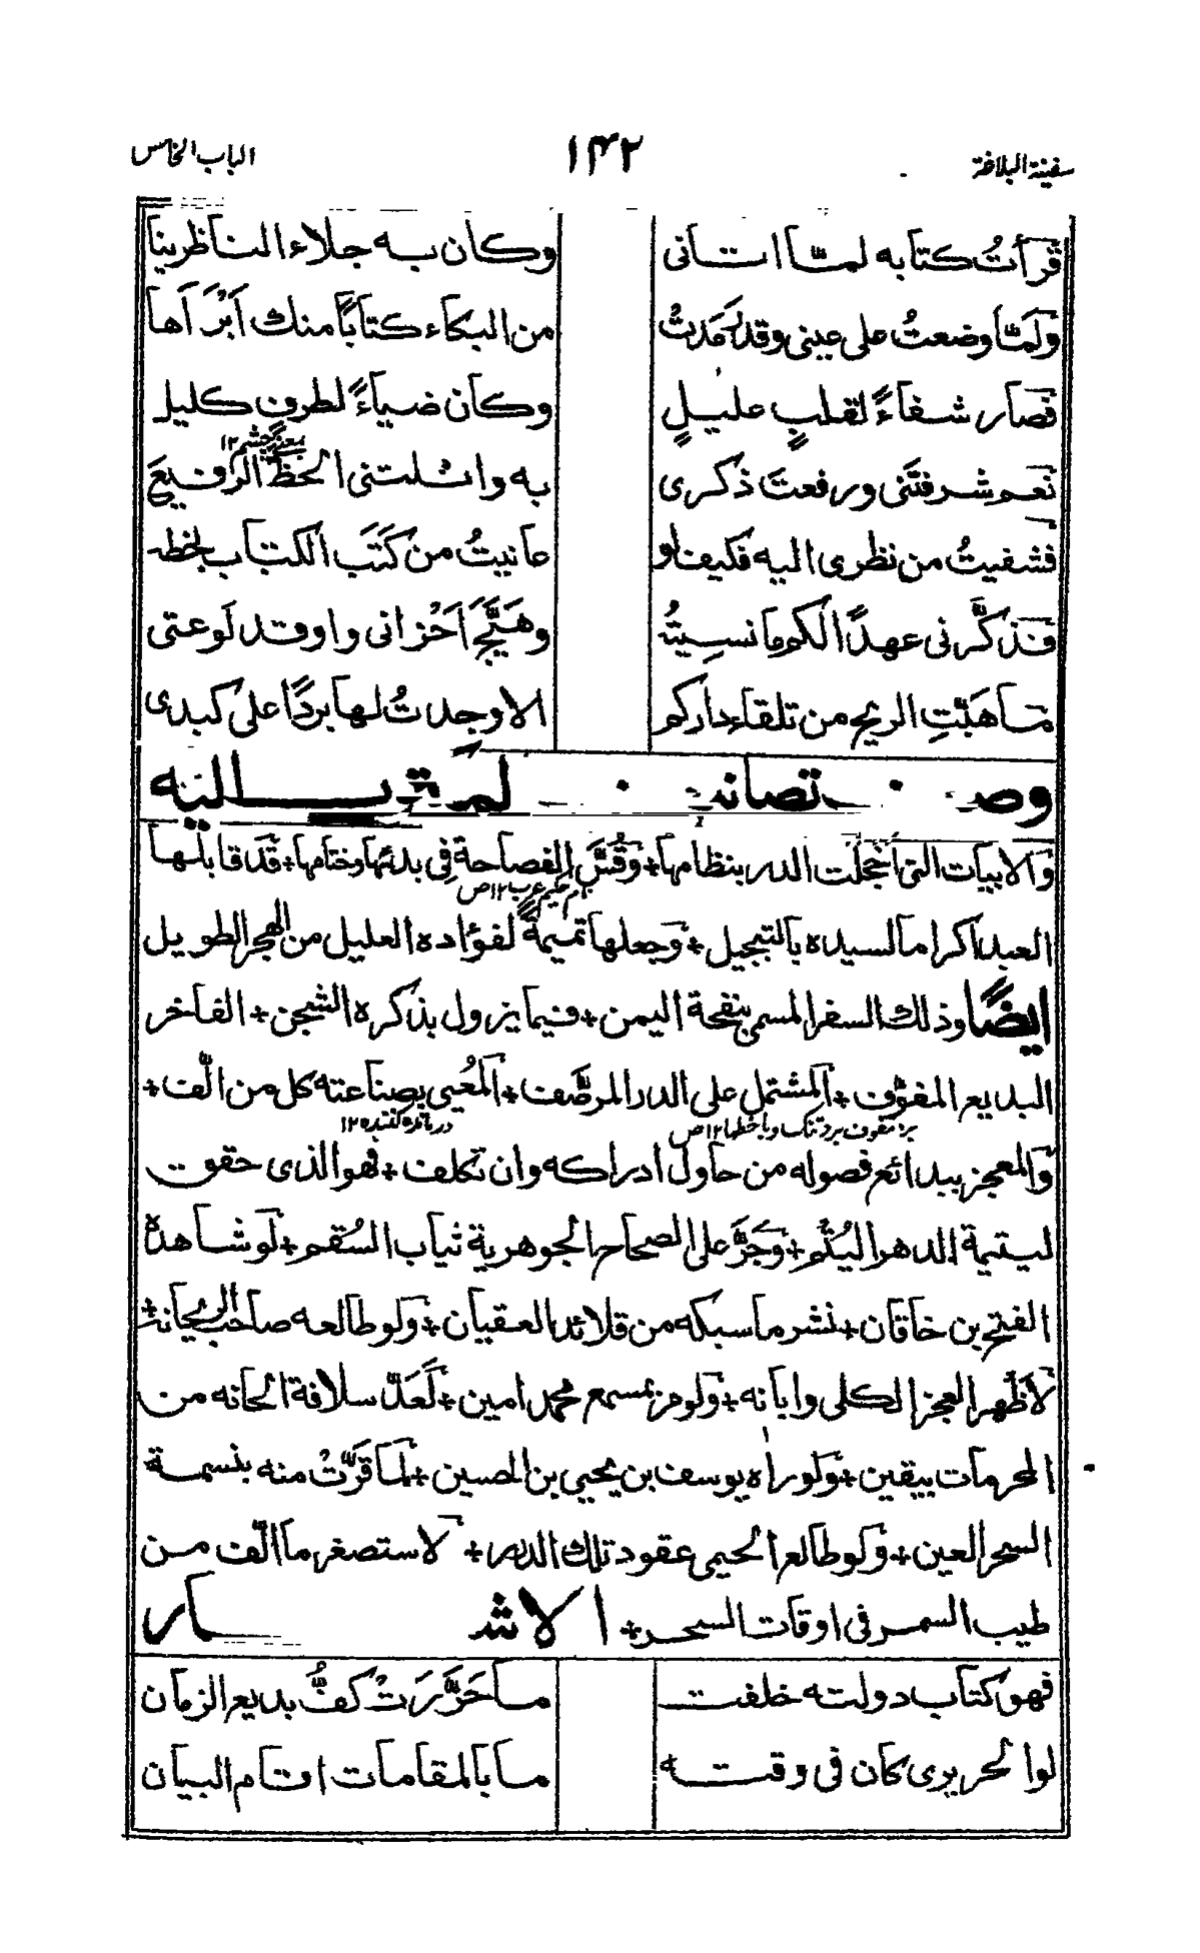 سفينة البلاغة ١٤٢ الباب الخامس
قرأتُ كتابه لمّا اتانى وكان به جلاء الناظرينا
ولمّا وضعتُ على عينى وقد رَمَدتْ من البكاء كتاباً منك اَبْرَاَها
فصار شفاءً لقلبٍ عليلٍ وكان ضياءً لطرفٍ كليل
بمعنى چشم ١٢
نعم شرفتَنى ورفعتَ ذكرى به وانلتنى الحظَّ الرَفيعَ
فشفيتُ من نظرى اليه فكيف لو عانيتُ من كَتَبَ الكتاب بلحظه
فذكّرنى عهدًا لكم ما نسيتُه وهَيَّجَ اَحْزانى واوقد لَوعتى
ما هَبّتِ الريح من تلقاء داركم الا وجدتُ لها بردًا على كبدى
وصف تصانيف لمرتبة اليه
والابيات التى اَخجَلَت الدرر بنظامها + وقُسَّ الفصاحة فى بدئها وختامها + قد قابلها
نام حكيم عرب ١٢ ص
العبد اكراما لسيده بالتبجيل + وجعلها تميمةً لفؤاده العليل من الهجر الطويل
ايضًا وذلك السفر المسمى بنفحة اليمن + فيما يزول بذكره الشجن + الفاخر
البديع المفوّف + المشتمل على الدر المرصَّف + المُعيى بصناعته كل من الّف +
برد مفوف برد تنك وباخطها ١٢ ص
والمعجز ببدائع فصوله من حاول ادراكه وان تكلف + فهو الذى حققت
ليتيمة الدهر اليُتْم + وجَرَّ على الصحاح الجوهرية ثياب السُقم + لو شاهده
الفتح بن خاقان + نشر ما سبكه من قلائد العقيان + ولو طالعه صاحب الريحانة +
لاَظهر العجز الكلى وابانه + ولو مر بمسمع محمد امين + لَعَدَّ سلافة الحانه من
المحرمات بيقين + ولو راٰه يوسف بن يحيى بن الحسين + لما قَرّتْ منه بنسمة
السحر العين + ولو طالع الحيمى عقود تلك الدرر + لاستصغر ما الّف من
طيب السمر فى اوقات السحر + الاشعار
فهو كتاب دولته خلفت ما حَرَّرَتْ كفُّ بديع الزمان
لو الحريرى كان فى وقته ما بالمقامات اقام البيان